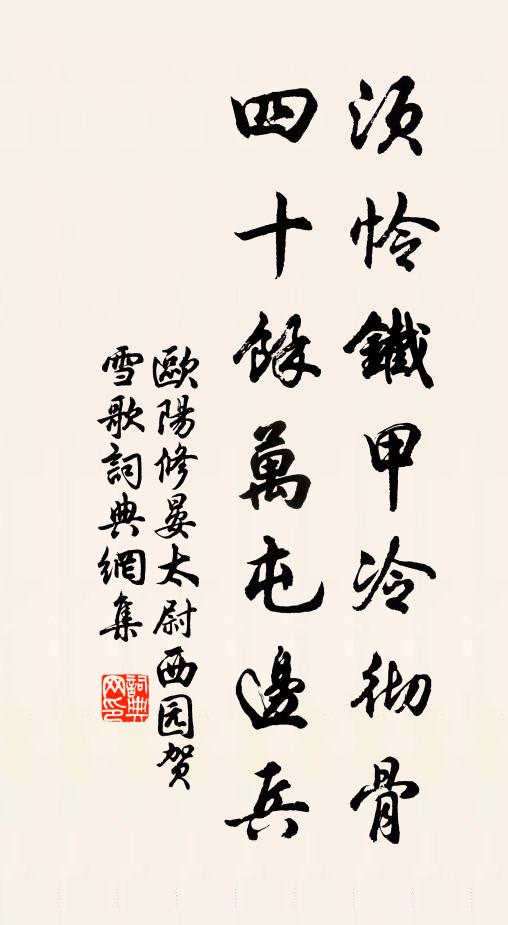 須怜鐵甲冷彻骨
四十餘萬屯邊兵
歐陽修晏太尉西园贺
雪歌詞典網集
詞典网印